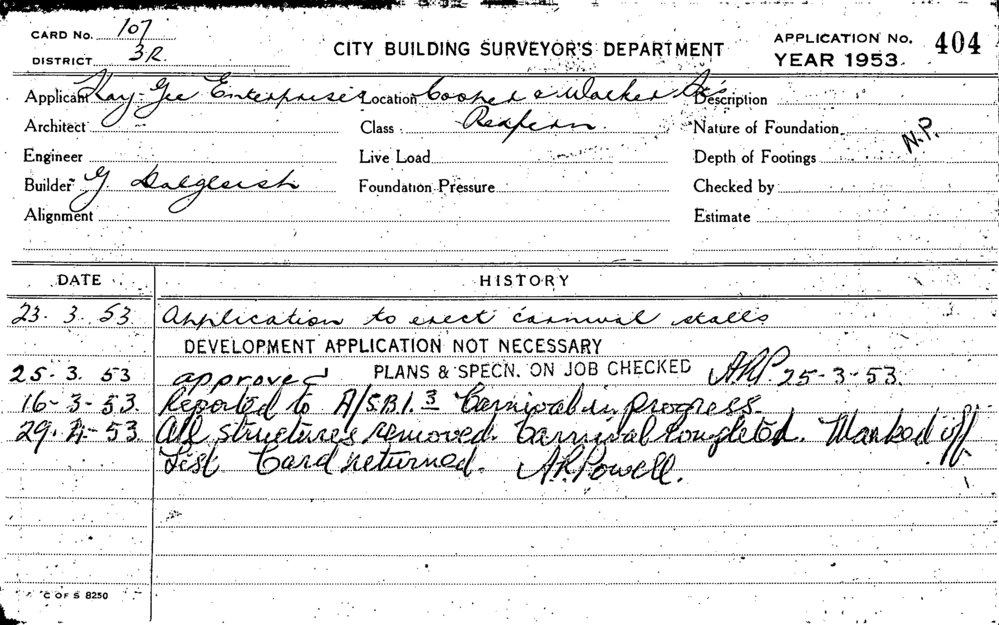 CARD No. 107
DISTRICT 3R.
CITY BUILDING SURVEYOR'S DEPARTMENT
APPLICATION No. 404
YEAR 1953.
Applicant Kay Gee Enterprises Location Cooper & Walker Sts Description
Architect Class Redfern Nature of Foundation N.P.
Engineer Live Load Depth of Footings
Builder G. Dalgleish Foundation Pressure Checked by
Alignment Estimate
DATE HISTORY
23. 3. 53 Application to erect carnival stalls
DEVELOPMENT APPLICATION NOT NECESSARY
25-3. 53 approved PLANS & SPECN. ON JOB CHECKED ARP 25-3-53.
16-3-53. Reported to A/S.B.I. 3 Carnival in progress.
29.4-53. All structures removed. Carnival Completed. Marked off
List Card returned. A.R.Powell.
C OF S 8250